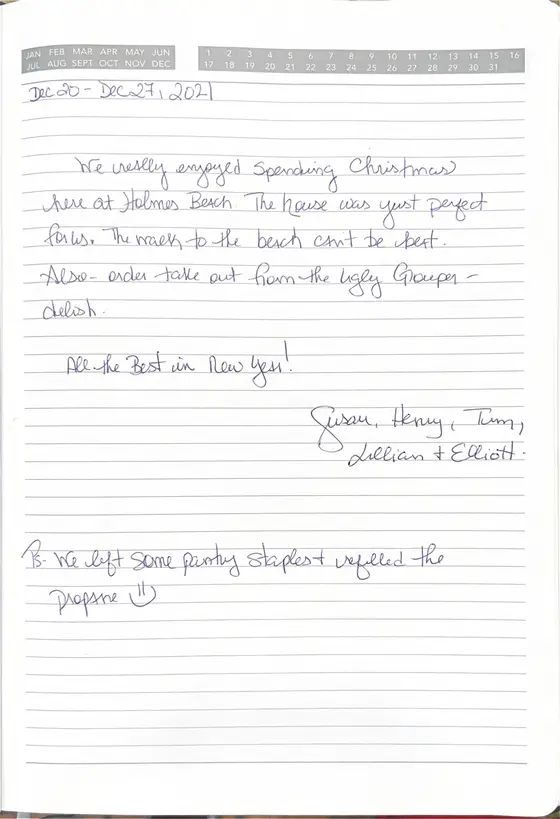 JAN FEB MAR APR MAY JUN
JUL AUG SEPT OCT NOV DEC
1 2 3 4 5 6 7 8 9 10 11 12 13 14 15 16
17 18 19 20 21 22 23 24 25 26 27 28 29 30 31
Dec 20 - Dec 27, 2021
We really enjoyed spending Christmas
here at Holmes Beach. The house was just perfect
for us. The walk to the beach can't be beat.
Also - order take out from the Ugly Grouper -
delish.
All the Best in New Year!
Susan, Henry, Tim,
Lillian + Elliott.
Ps. We left some pantry staples + refilled the
propane